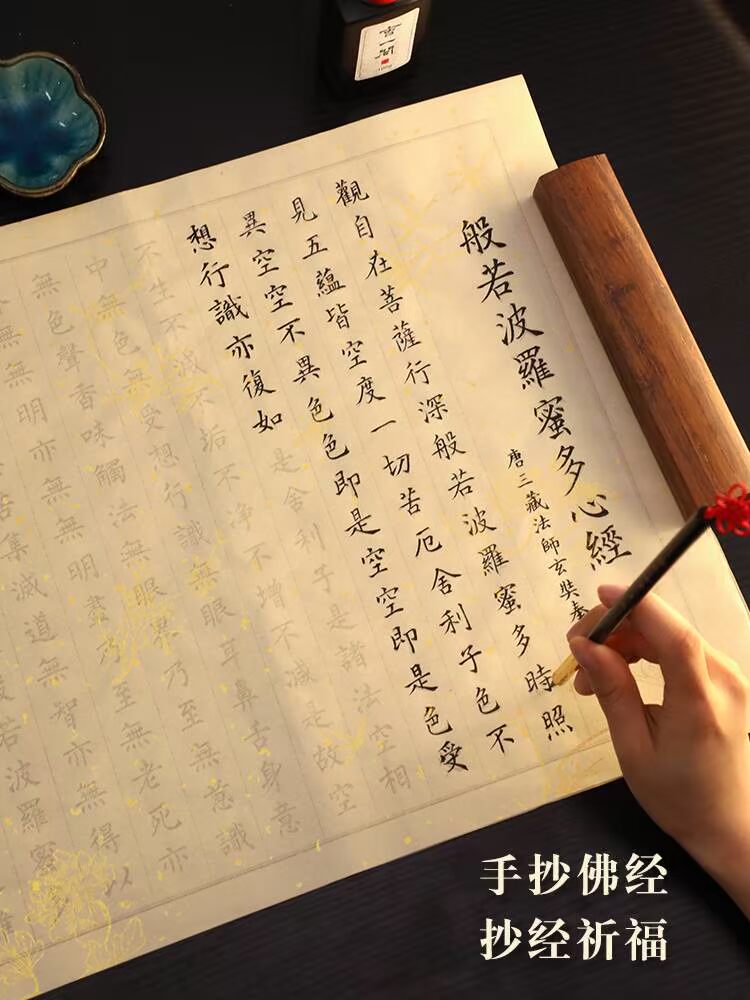 般若波羅蜜多心經
唐三藏法師玄奘奉
觀自在菩薩行深般若波羅蜜多時照
見五蘊皆空度一切苦厄舍利子色不
異空空不異色色即是空空即是色受
想行識亦復如是舍利子是諸法空相
不生不滅不垢不淨不增不減是故空
中無色無受想行識無眼耳鼻舌身意
無色聲香味觸法無眼界乃至無意識
無無明亦無無明盡乃至無老死亦
苦集滅道無智亦無得以
若波羅蜜
手抄佛经
抄经祈福